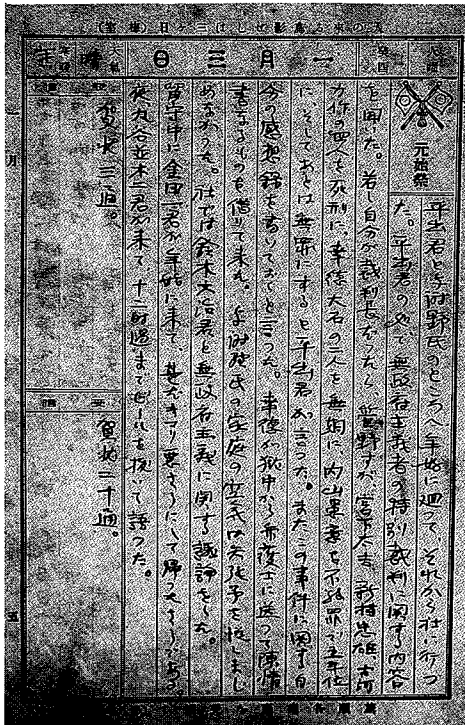 一月三日
天氣 晴
元始祭
平出君と与謝野氏のところへ年始に廻つて、それから社に行つ
た。平出君の処で無政府主義者の特別裁判に関する内容
を聞いた。若し自分が裁判長だつたら、管野すが、宮下太吉、新村忠雄、古河
力作の四人を死刑に、幸徳大石の二人を無期に、内山愚童を不敬罪で五年位
に、そしてあとは無罪にすると平出君が言つた。またこの事件に関する自
分の感想録を書いておくと言つた。幸徳が獄中から弁護士に送つた陳弁
書なるものを借りて来た。与謝野氏の家庭の空気は矢張予を悦しまし
めなかつた。社では鈴木文治君と無政府主義に関する議論をした。
留守中に金田一君が年始に来て、甚だキマリ悪さうにして帰つたさうである。
夜丸谷並木二君が来て、十二時過までビールを抜いて語つた。
賀状三通。
賀状二十通。